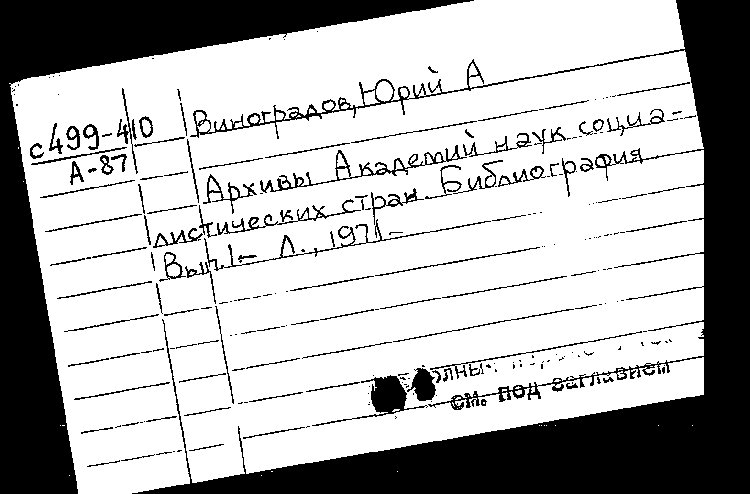 с499-410
А-87
Виноградов, Юрий А
Архивы Академий наук социа-
листических стран. Библиография
Вып.1- Л., 1971-
см. под заглавием